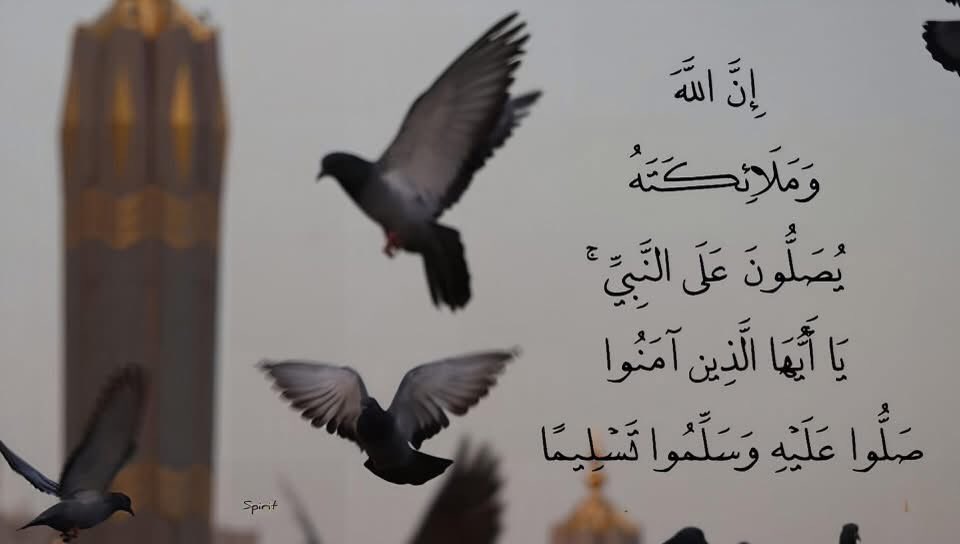 إِنَّ اللَّهَ
وَمَلَائِكَتَهُ
يُصَلُّونَ عَلَى النَّبِيِّ ۚ
يَا أَيُّهَا الَّذِين آمَنُوا
صَلُّوا عَلَيْهِ وَسَلِّمُوا تَسْلِيمًا
Spirit